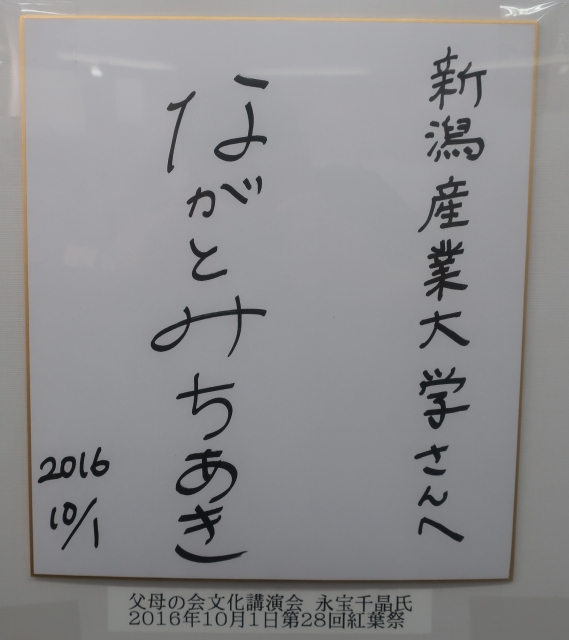 新潟産業大学さんへ
ながとみちあき
2016
10/1
父母の会文化講演会 永宝千晶氏
2016年10月1日第28回紅葉祭